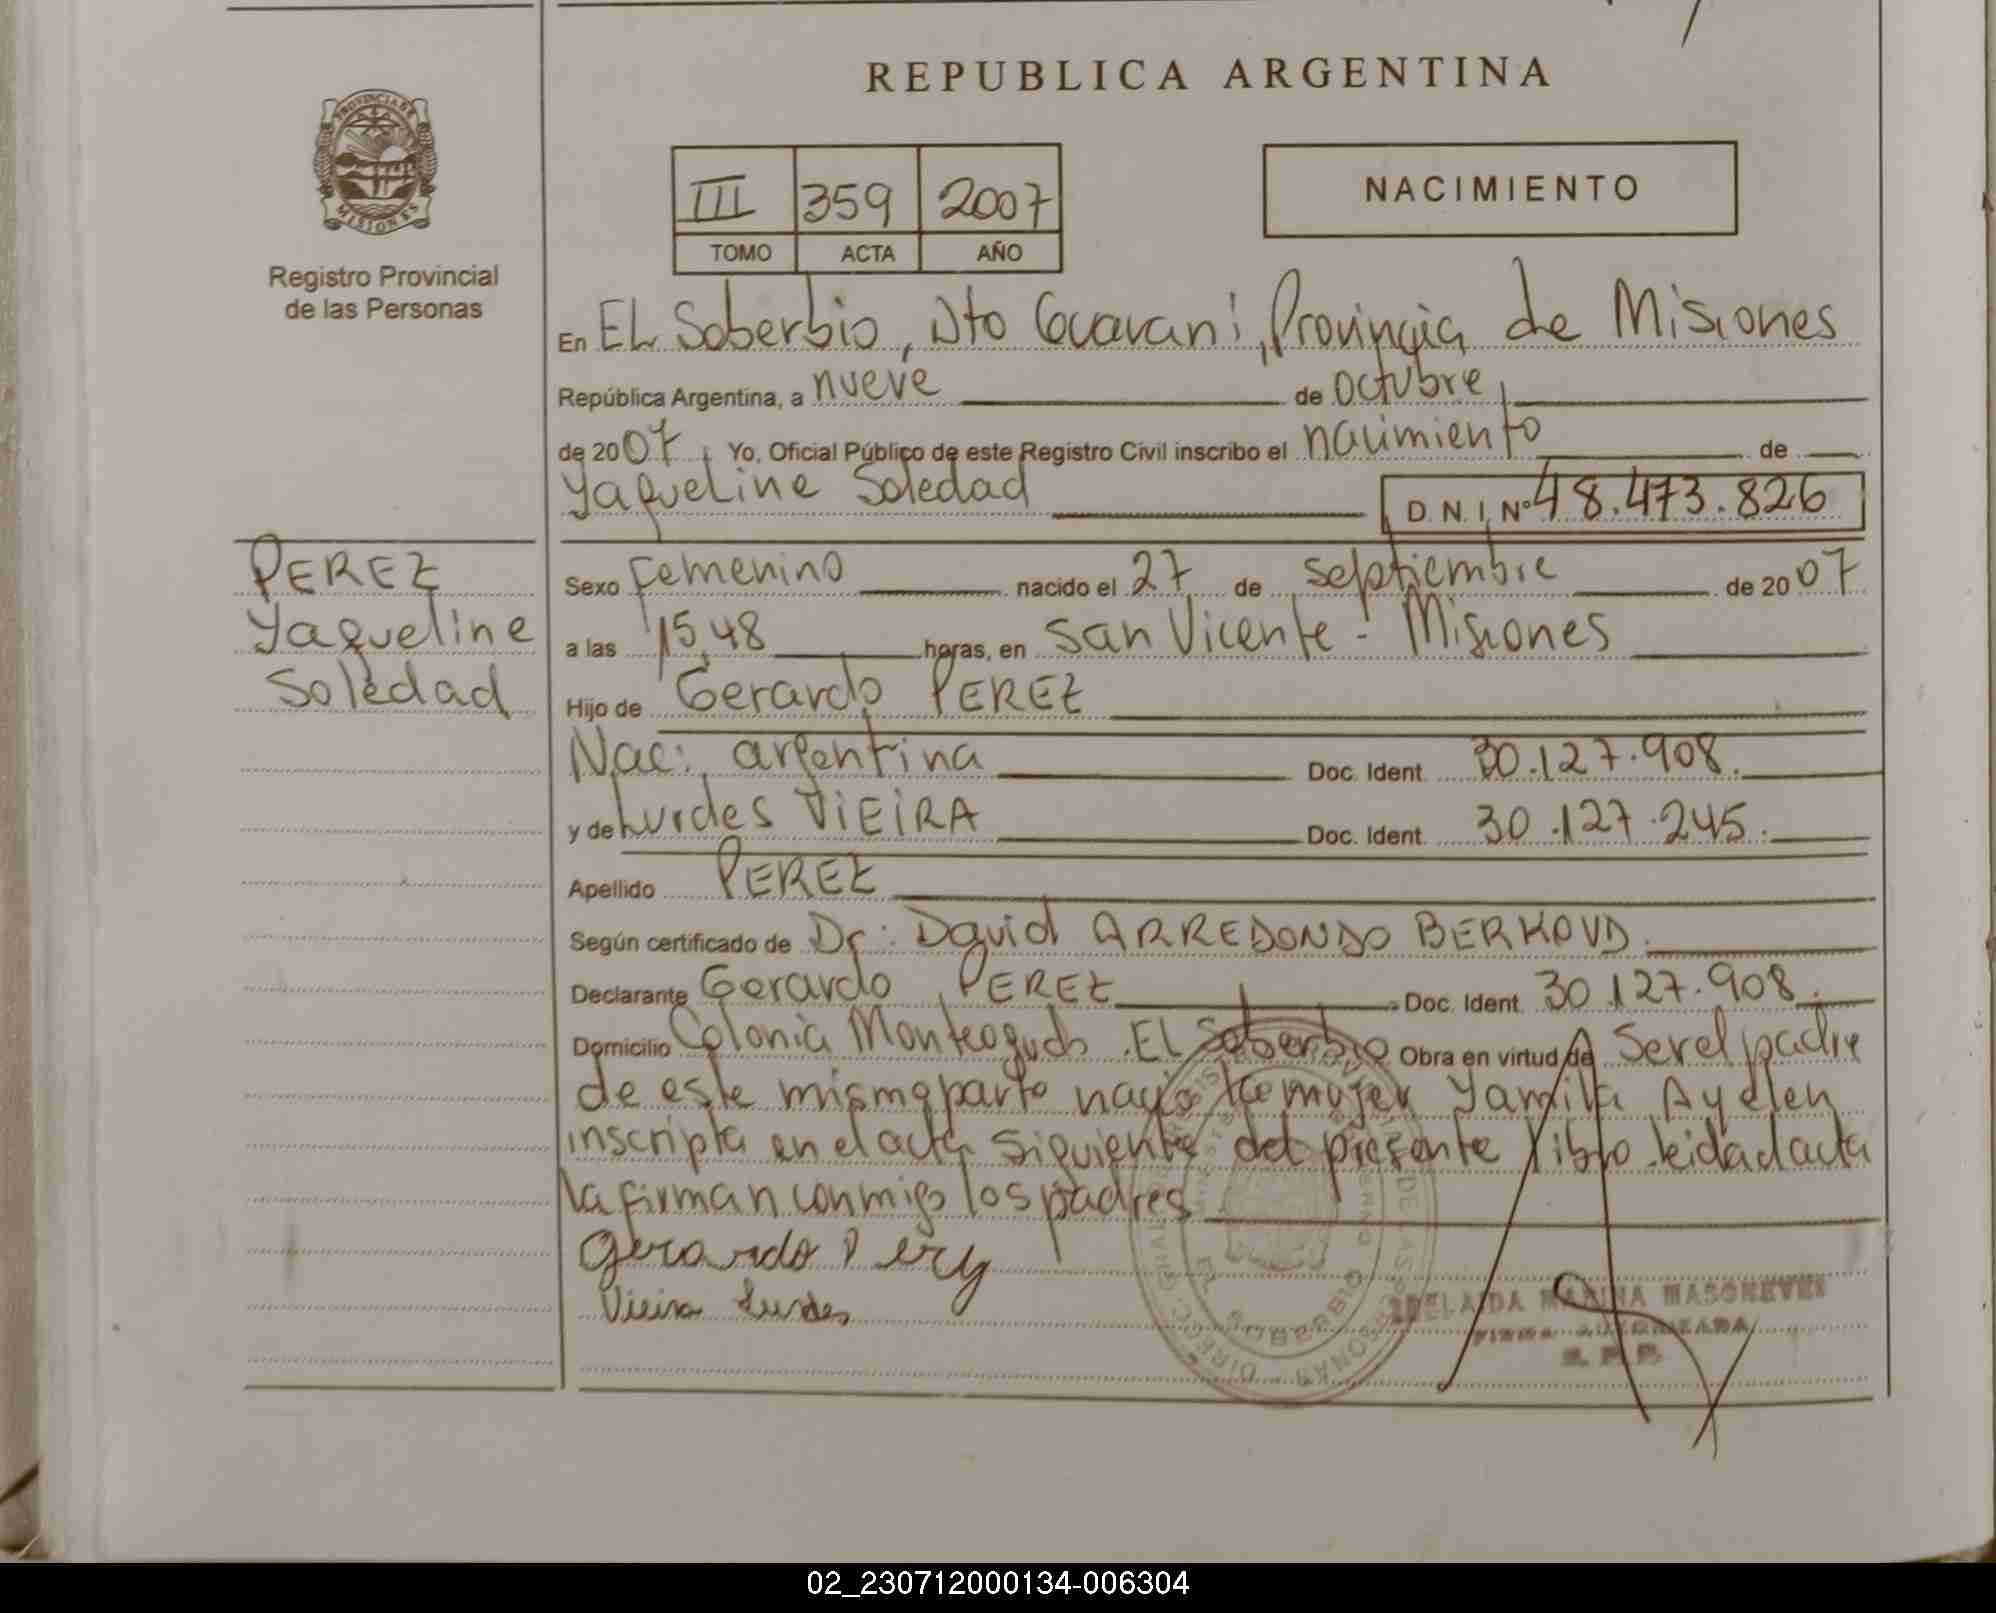 REPUBLICA ARGENTINA
PROVINCIA DE
MISIONES
Registro Provincial
de las Personas
III 359 2007
TOMO ACTA AÑO
NACIMIENTO
En EL Soberbio, Dto Guarani, Provincia de Misiones
República Argentina, a nueve de octubre
de 2007 Yo, Oficial Público de este Registro Civil inscribo el nacimiento de
Yaqueline Soledad D.N.I. Nº 48.473.826
PEREZ
Yaqueline
Soledad
Sexo Femenino nacido el 27 de septiembre de 2007
a las 15,48 horas, en San Vicente - Misiones
Hijo de Gerardo PEREZ
Nac: argentina Doc. Ident. 30.127.908.
y de Lurdes ViEiRA Doc. Ident. 30.127.245.
Apellido PEREZ
Según certificado de Dr: David ARREDONDO BERKOVD.
Declarante Gerardo PEREZ Doc. Ident. 30.127.908.
Domicilio Colonia Monteagudo. El Soberbio Obra en virtud de Ser el padre
de este mismo parto nacio mujer Yamila Ayelen
inscripta en el acta siguiente del presente libro. Leida el acta
la firman conmigo los padres
Gerardo Perez
Vieira Lurdes
ADELAIDA MARINA
FIRMA AUTORIZADA
EL SOBERBIO
02_230712000134-006304